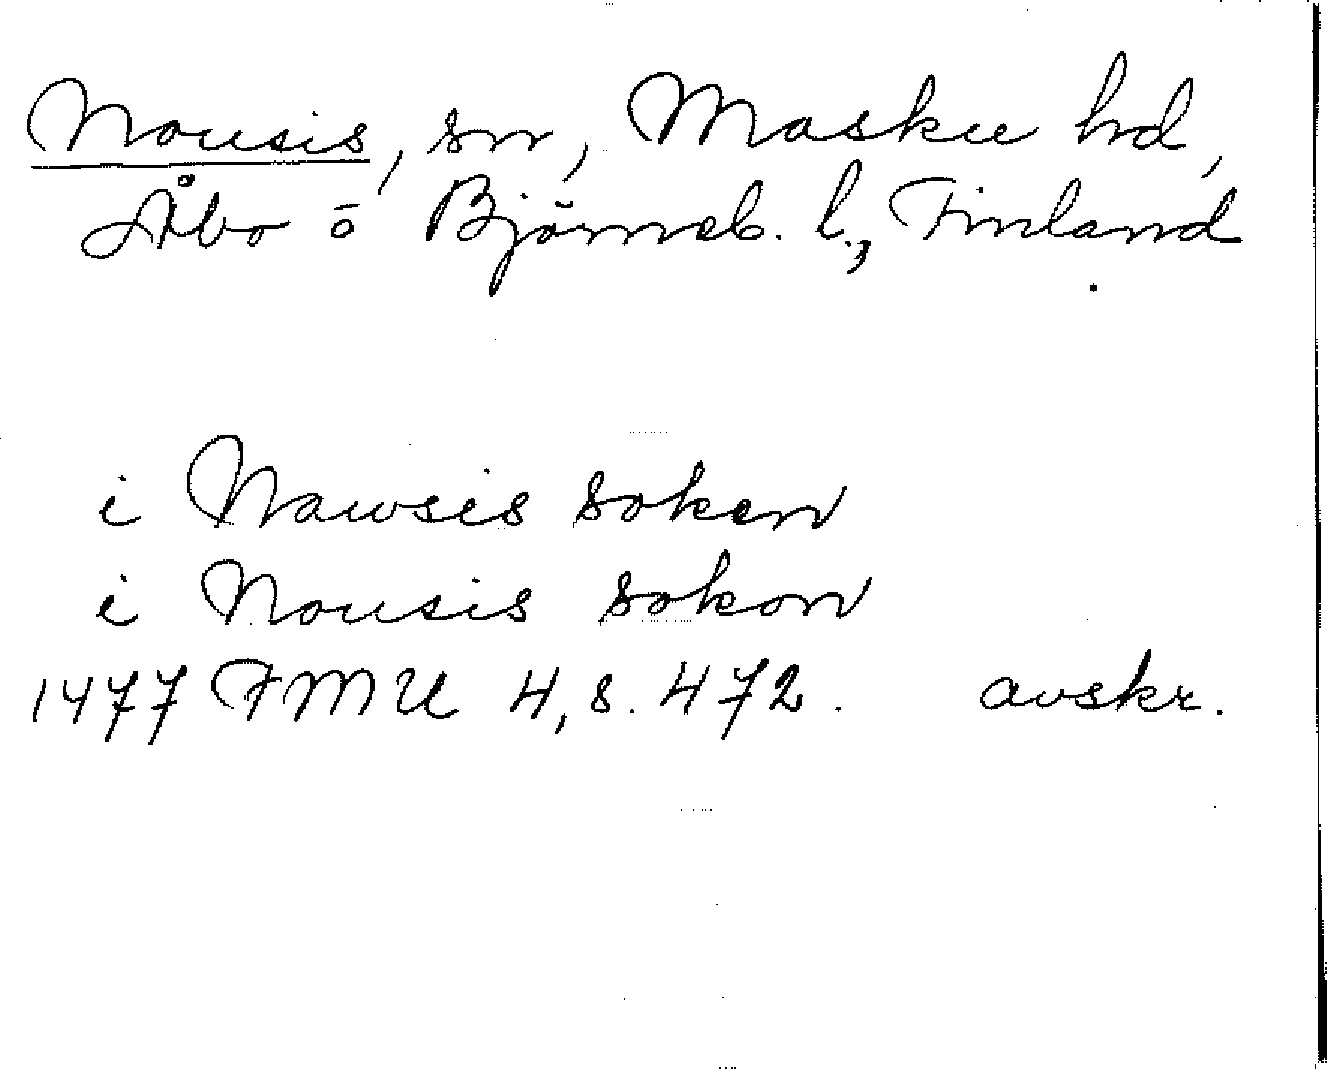 Nousis, sn, Masku hd,
Åbo o Björneb. l., Finland
i Nawsis soken
i Nousis sokon
1477 FMU 4, s. 472. avskr.